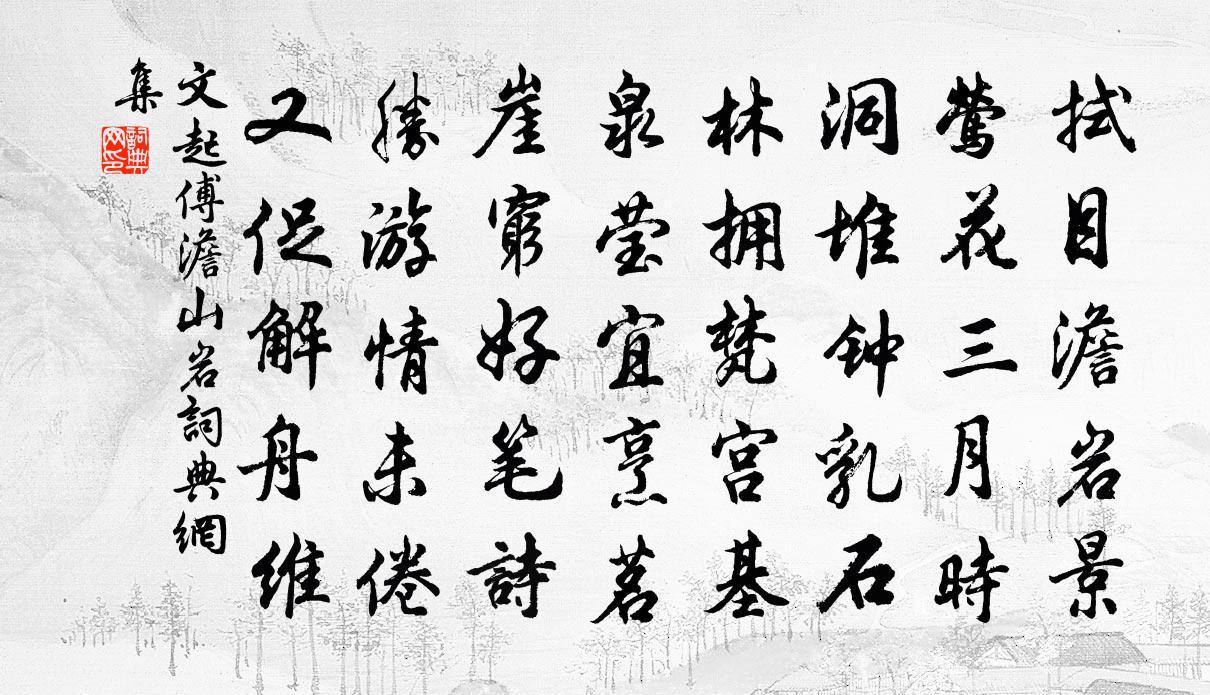 拭目澹岩景
莺花三月時
洞堆钟乳石
林拥梵宫基
泉莹宜烹茗
崖穷好笔詩
勝游情未倦
又促解舟维
文起傅澹山岩詞典網
集
詞典網印